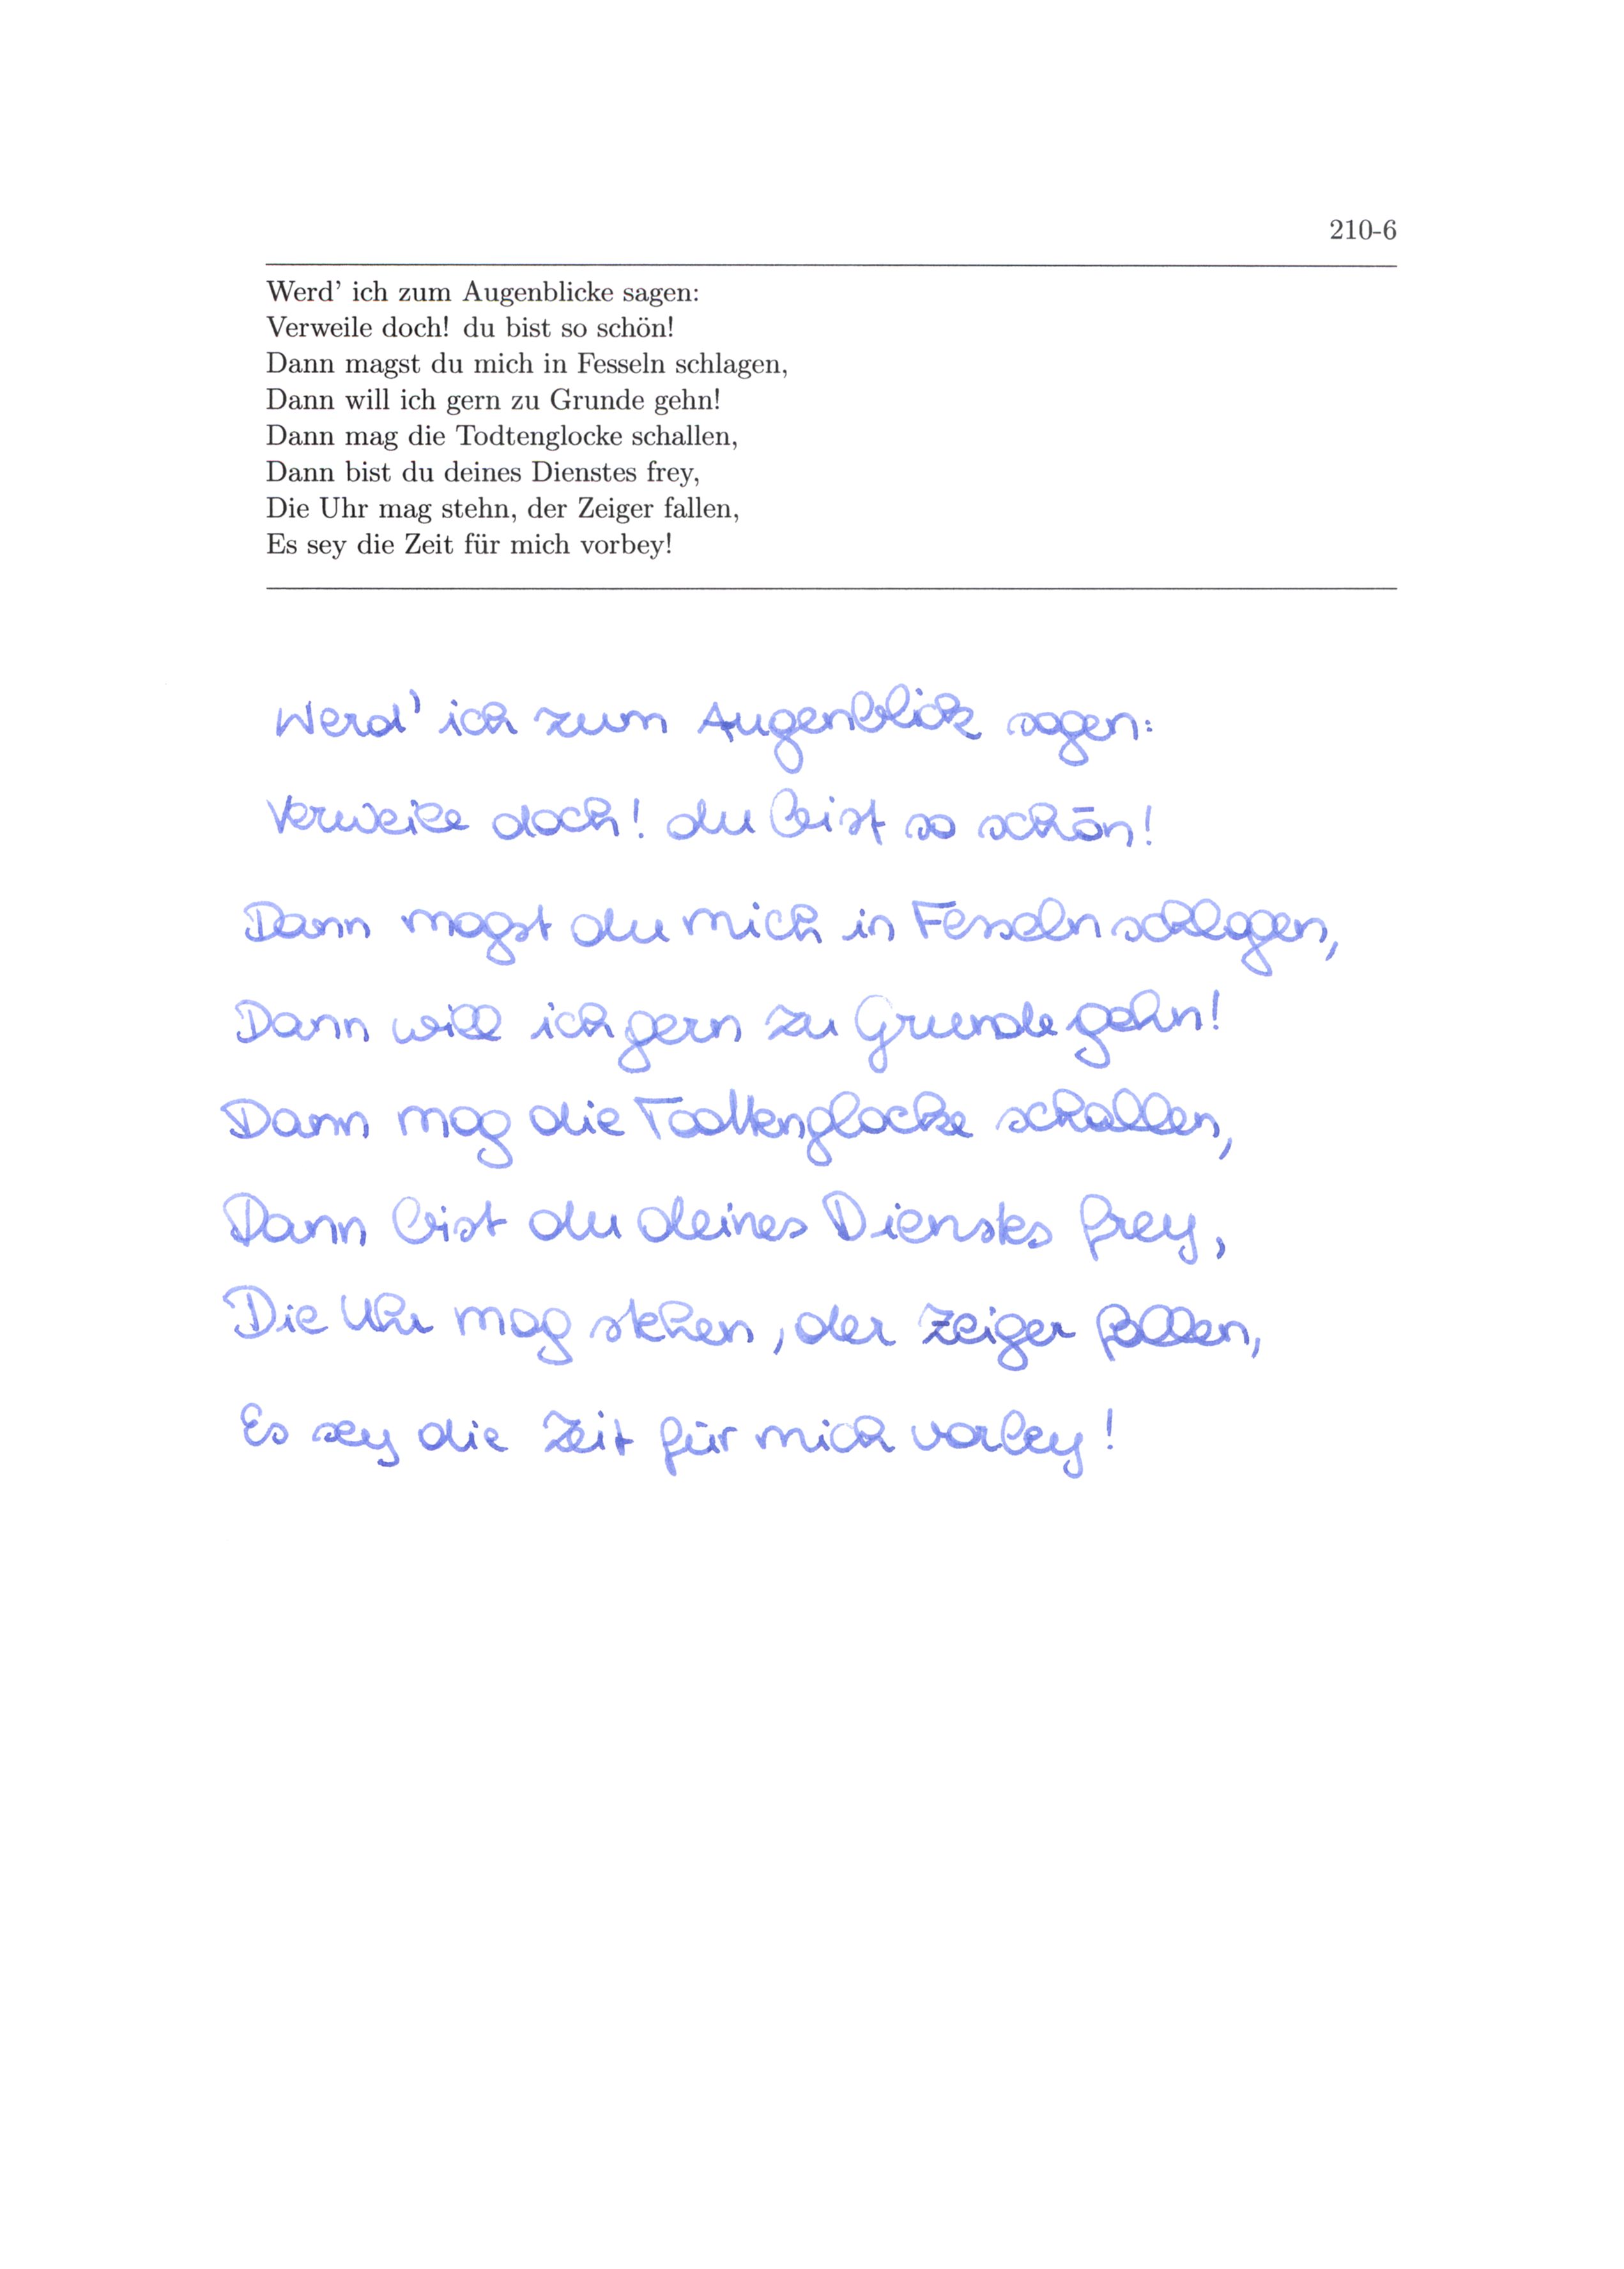 210-6
Werd' ich zum Augenblicke sagen:
Verweile doch! du bist so schön!
Dann magst du mich in Fesseln schlagen,
Dann will ich gern zu Grunde gehn!
Dann mag die Todtenglocke schallen,
Dann bist du deines Dienstes frey,
Die Uhr mag stehn, der Zeiger fallen,
Es sey die Zeit für mich vorbey!
Werd' ich zum Augenblick sagen:
Verweile doch! du bist so schön!
Dann magst du mich in Fesseln schlagen,
Dann will ich gern zu Grunde gehn!
Dann mag die Todtenglocke schallen,
Dann bist du deines Dienstes frey,
Die Uhr mag stehen, der Zeiger fallen,
Es sey die Zeit für mich vorbey!